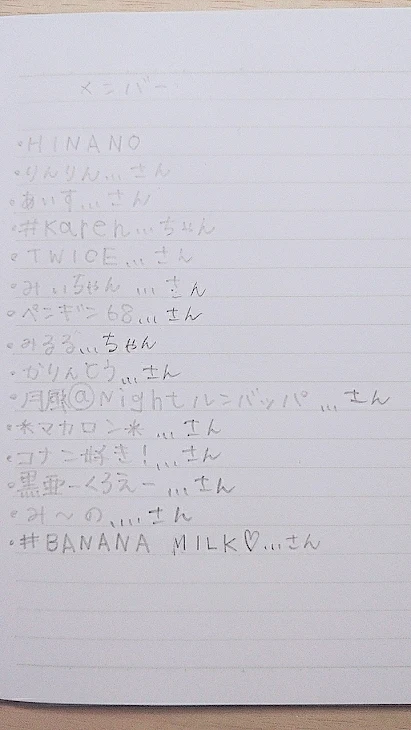 メンバー
・HINANO
・りんりん...さん
・あいす...さん
・#Karen...ちゃん
・TWICE...さん
・みぃちゃん ...さん
・ペンギン68...さん
・みるる...ちゃん
・かりんとう...さん
・月風@Nightルンバッパ ...さん
・*マカロン* ...さん
・コナン好き!...さん
・黒亜ーくろえー ...さん
・み〜の....さん
・#BANANA MILK♡...さん